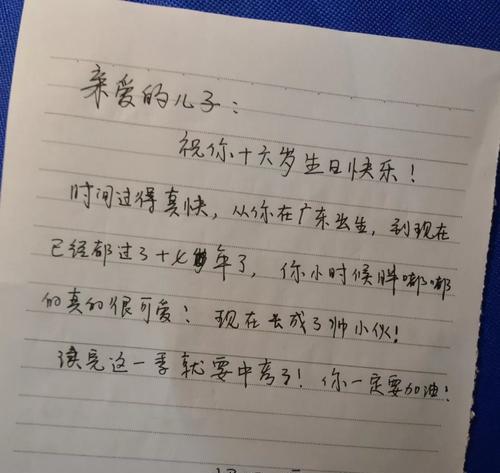 亲爱的儿子：
祝你十六岁生日快乐！
时间过得真快，从你在广东出生，到现在
已经都过了十六年了，你小时候胖嘟嘟
的真的很可爱；现在长成了帅小伙！
读完这一季就要中考了！你一定要加油！